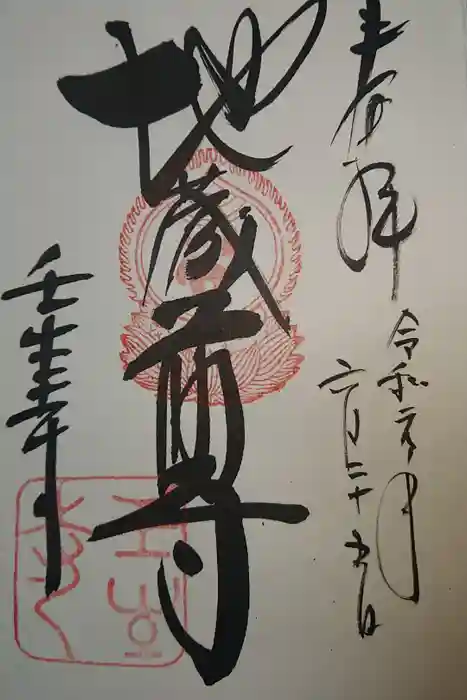 奉拝
令和元年
六月二十五日
地蔵尊
壬生寺